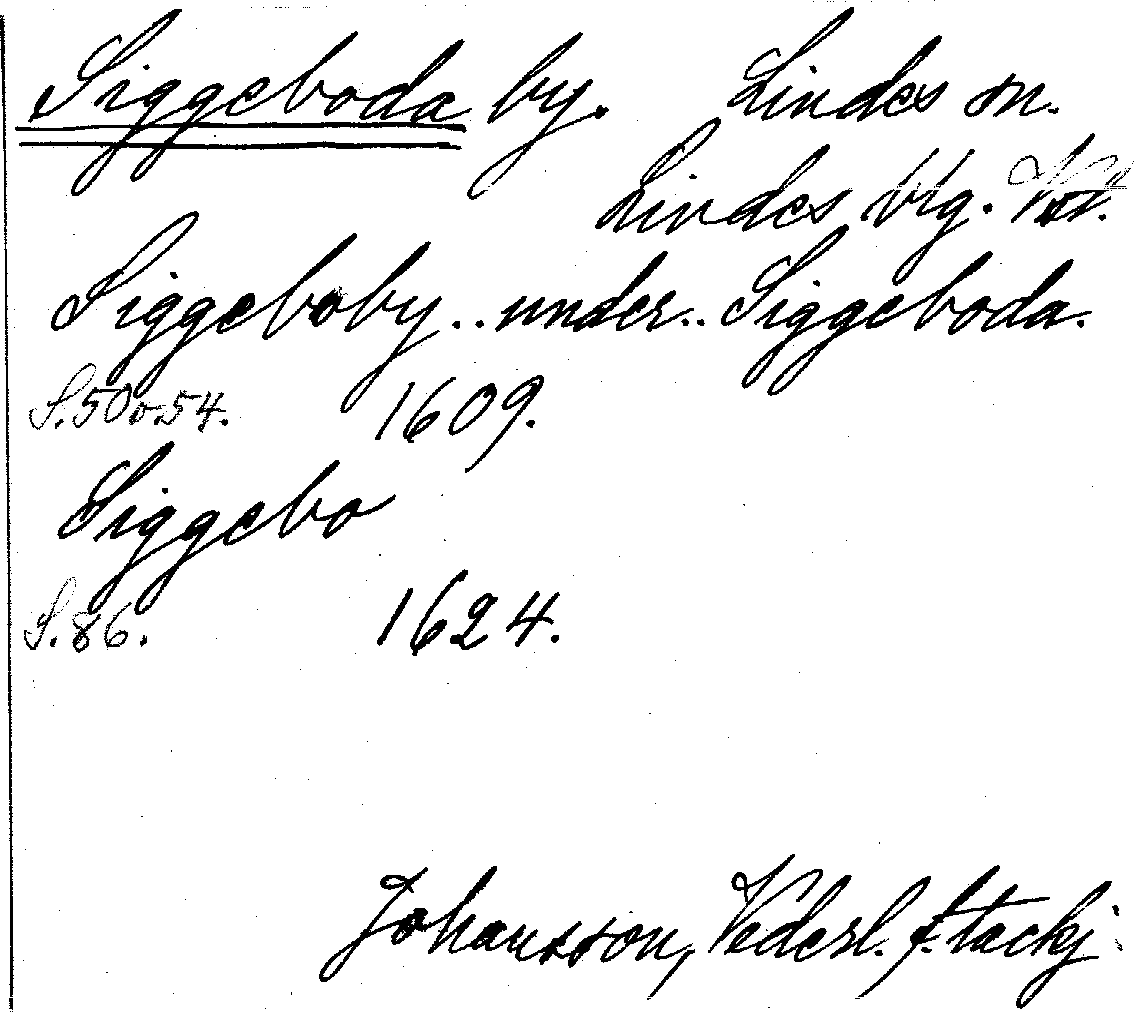 Siggeboda by. Lindes sn.
Lindes btg.
Siggeboby..under..Siggeboda.
S.50o.54. 1609.
Siggebo
S.86. 1624.
Johansson, Vederl. f. tackj.